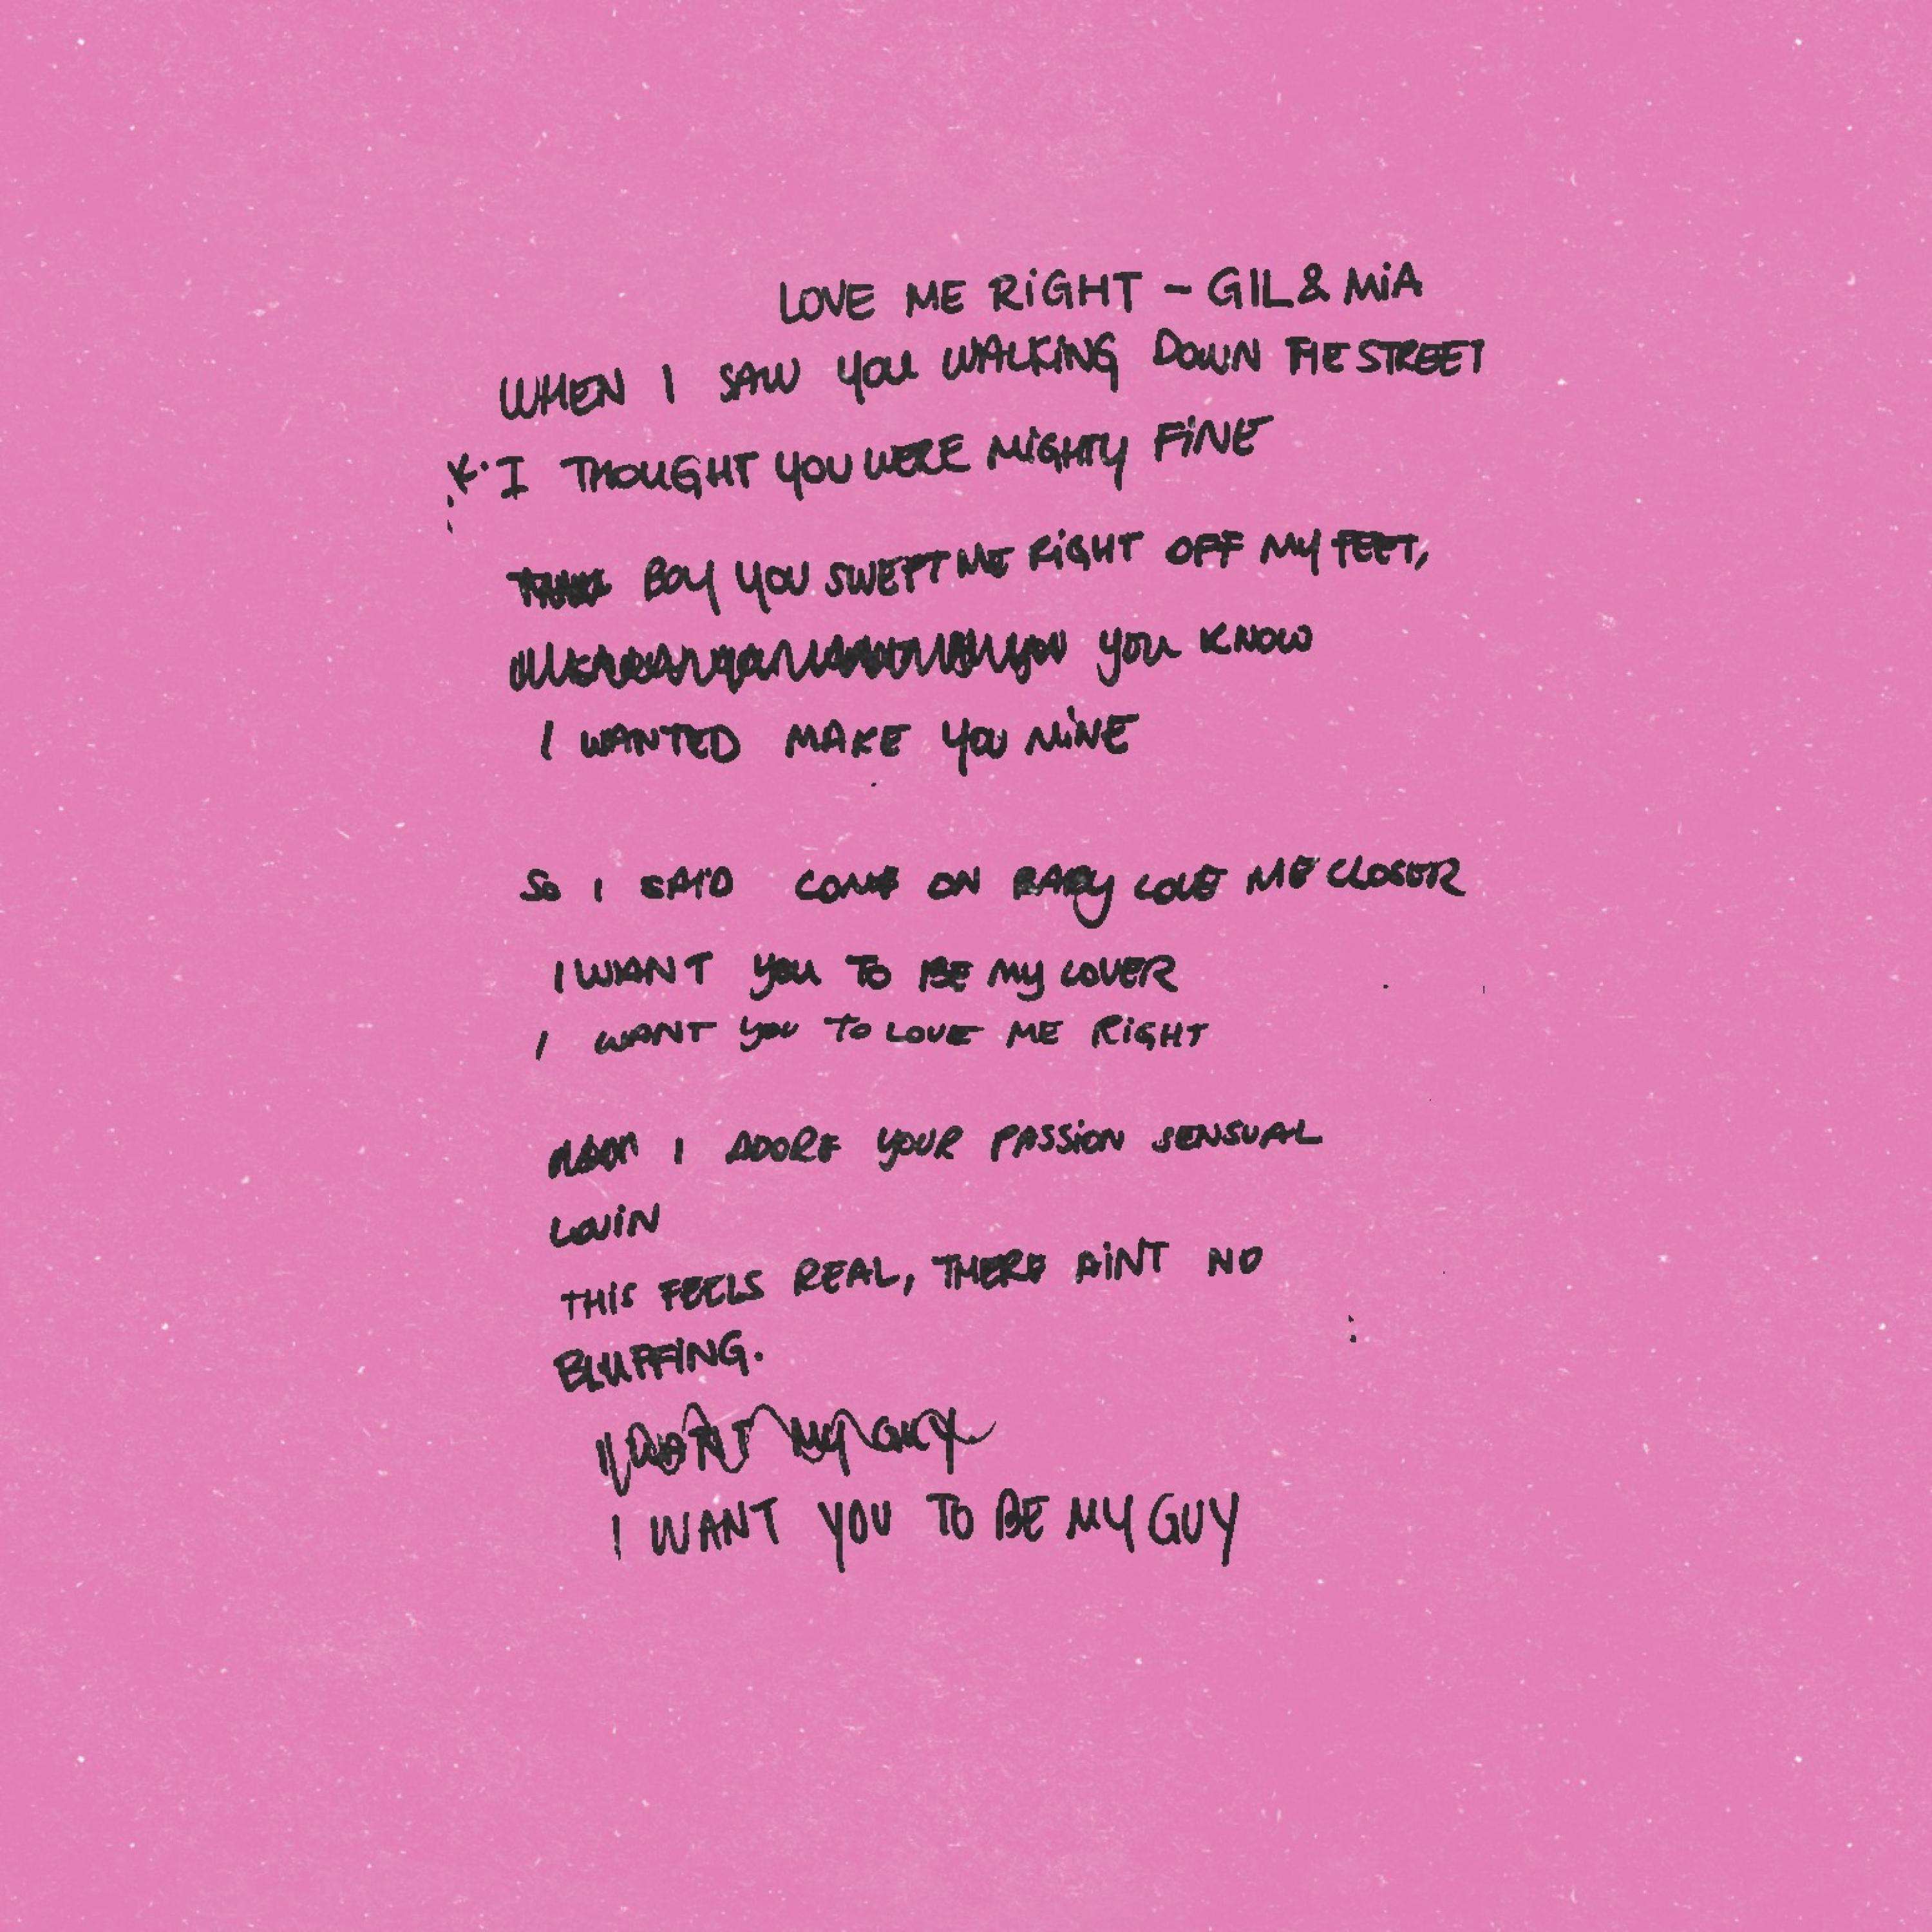 LOVE ME RiGHT - GIL & MiA
WHEN I SAW YOU WALKING DOWN THE STREET
I THOUGHT YOU WERE MiGHTY FiNE
BOY YOU SWEPT ME RiGHT OFF MY FEET,
YOU KNOW
I WANTED MAKE YOU MiNE
SO I SAID COME ON BABY LOVE ME CLOSER
I WANT YOU TO BE MY LOVER
I WANT YOU TO LOVE ME RiGHT
I ADORE YOUR PASSiON SENSUAL
LOViN
THiS FEELS REAL, THERE AiNT NO
BLUFFiNG.
I WANT YOU TO BE MY GUY